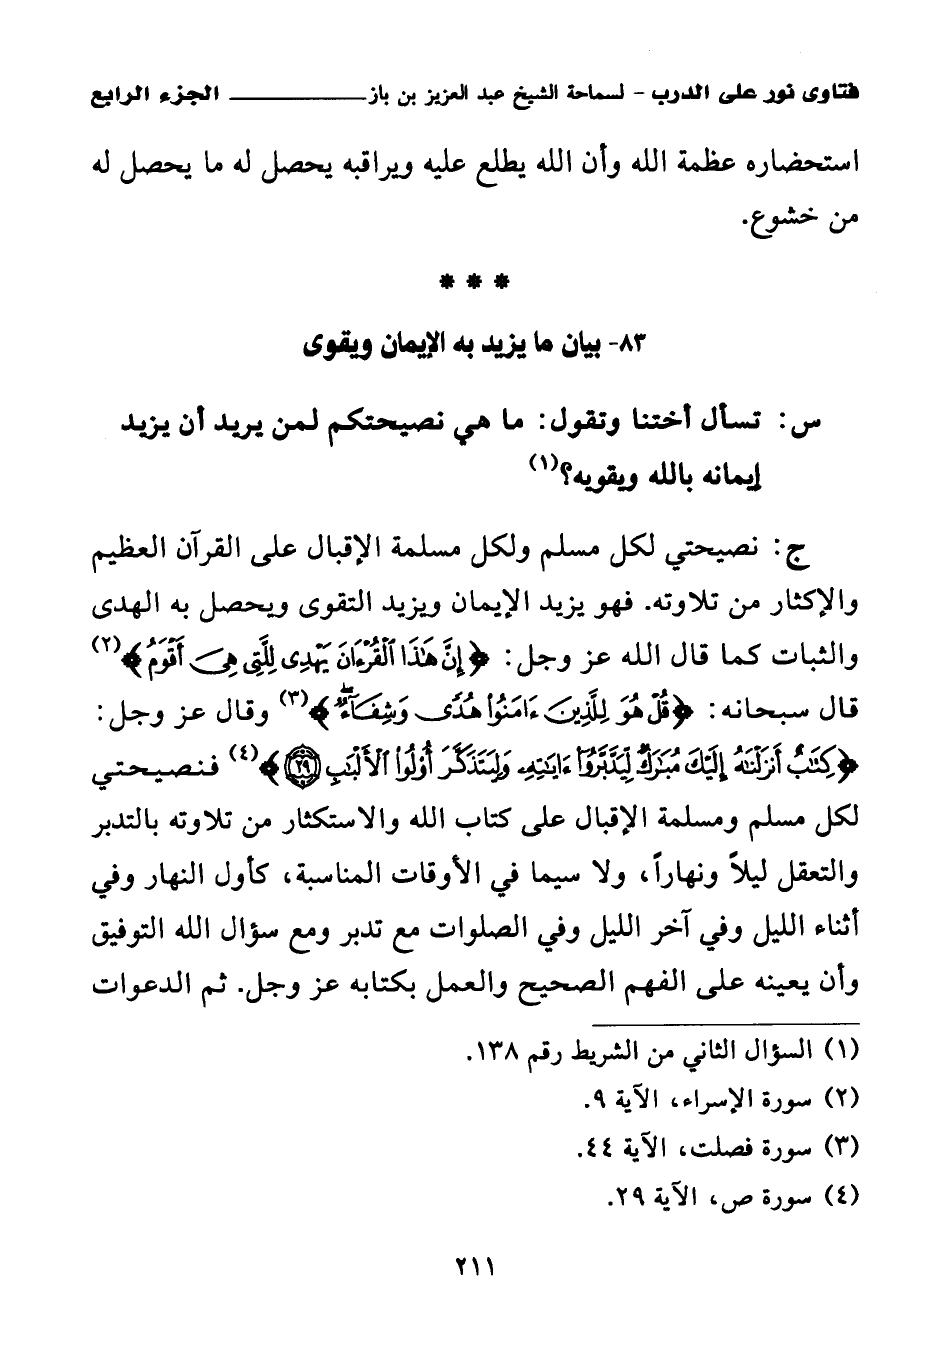 فتاوى نور على الدرب - لسماحة الشيخ عبد العزيز بن باز ـــــــــــــــ الجزء الرابع
استحضاره عظمة الله وأن الله يطلع عليه ويراقبه يحصل له ما يحصل له
من خشوع.
* * *
٨٣- بيان ما يزيد به الإيمان ويقوى
س: تسأل أختنا وتقول: ما هي نصيحتكم لمن يريد أن يزيد
إيمانه بالله ويقويه؟(١)
ج: نصيحتي لكل مسلم ولكل مسلمة الإقبال على القرآن العظيم
والإكثار من تلاوته. فهو يزيد الإيمان ويزيد التقوى ويحصل به الهدى
والثبات كما قال الله عز وجل: ﴿إِنَّ هَٰذَا ٱلْقُرْءَانَ يَهْدِى لِلَّتِى هِىَ أَقْوَمُ﴾(٢)
قال سبحانه: ﴿قُلْ هُوَ لِلَّذِينَ ءَامَنُوا۟ هُدًى وَشِفَآءٌ ۖ﴾(٣) وقال عز وجل:
﴿كِتَٰبٌ أَنزَلْنَٰهُ إِلَيْكَ مُبَٰرَكٌ لِّيَدَّبَّرُوٓا۟ ءَايَٰتِهِۦ وَلِيَتَذَكَّرَ أُو۟لُوا۟ ٱلْأَلْبَٰبِ ٢٩﴾(٤) فنصيحتي
لكل مسلم ومسلمة الإقبال على كتاب الله والاستكثار من تلاوته بالتدبر
والتعقل ليلاً ونهاراً، ولا سيما في الأوقات المناسبة، كأول النهار وفي
أثناء الليل وفي آخر الليل وفي الصلوات مع تدبر ومع سؤال الله التوفيق
وأن يعينه على الفهم الصحيح والعمل بكتابه عز وجل. ثم الدعوات
(١) السؤال الثاني من الشريط رقم ١٣٨.
(٢) سورة الإسراء، الآية ٩.
(٣) سورة فصلت، الآية ٤٤.
(٤) سورة ص، الآية ٢٩.
٢١١